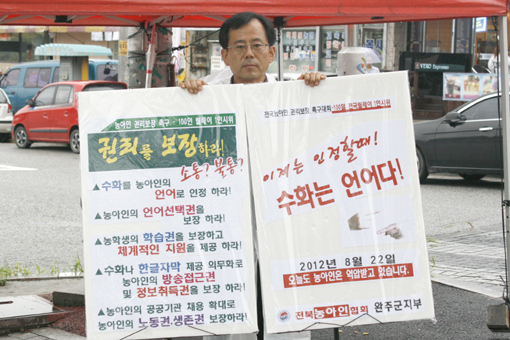 농아인 권리보장 촉구 - 100만 릴레이 1인시위
권리를 보장하라!
소통? 불통?
▲수화를 농아인의
언어로 인정 하라!
▲농아인의 언어선택권을
보장 하라!
▲농학생의 학습권을 보장하고
체계적인 지원을 제공 하라!
▲수화나 한글자막 제공 의무화로
농아인의 방송접근권
및 정보취득권을 보장 하라!
▲농아인의 공공기관 채용 확대로
농아인의 노동권.생존권 보장하라!
권리보장 촉구대회 - 100만 전국릴레이 1인시위
이제는 인정할때!
수화는 언어다!
2012년 8월 22일
오늘도 농아인은 억압받고 있습니다.
전북농아인협회 완주군지부